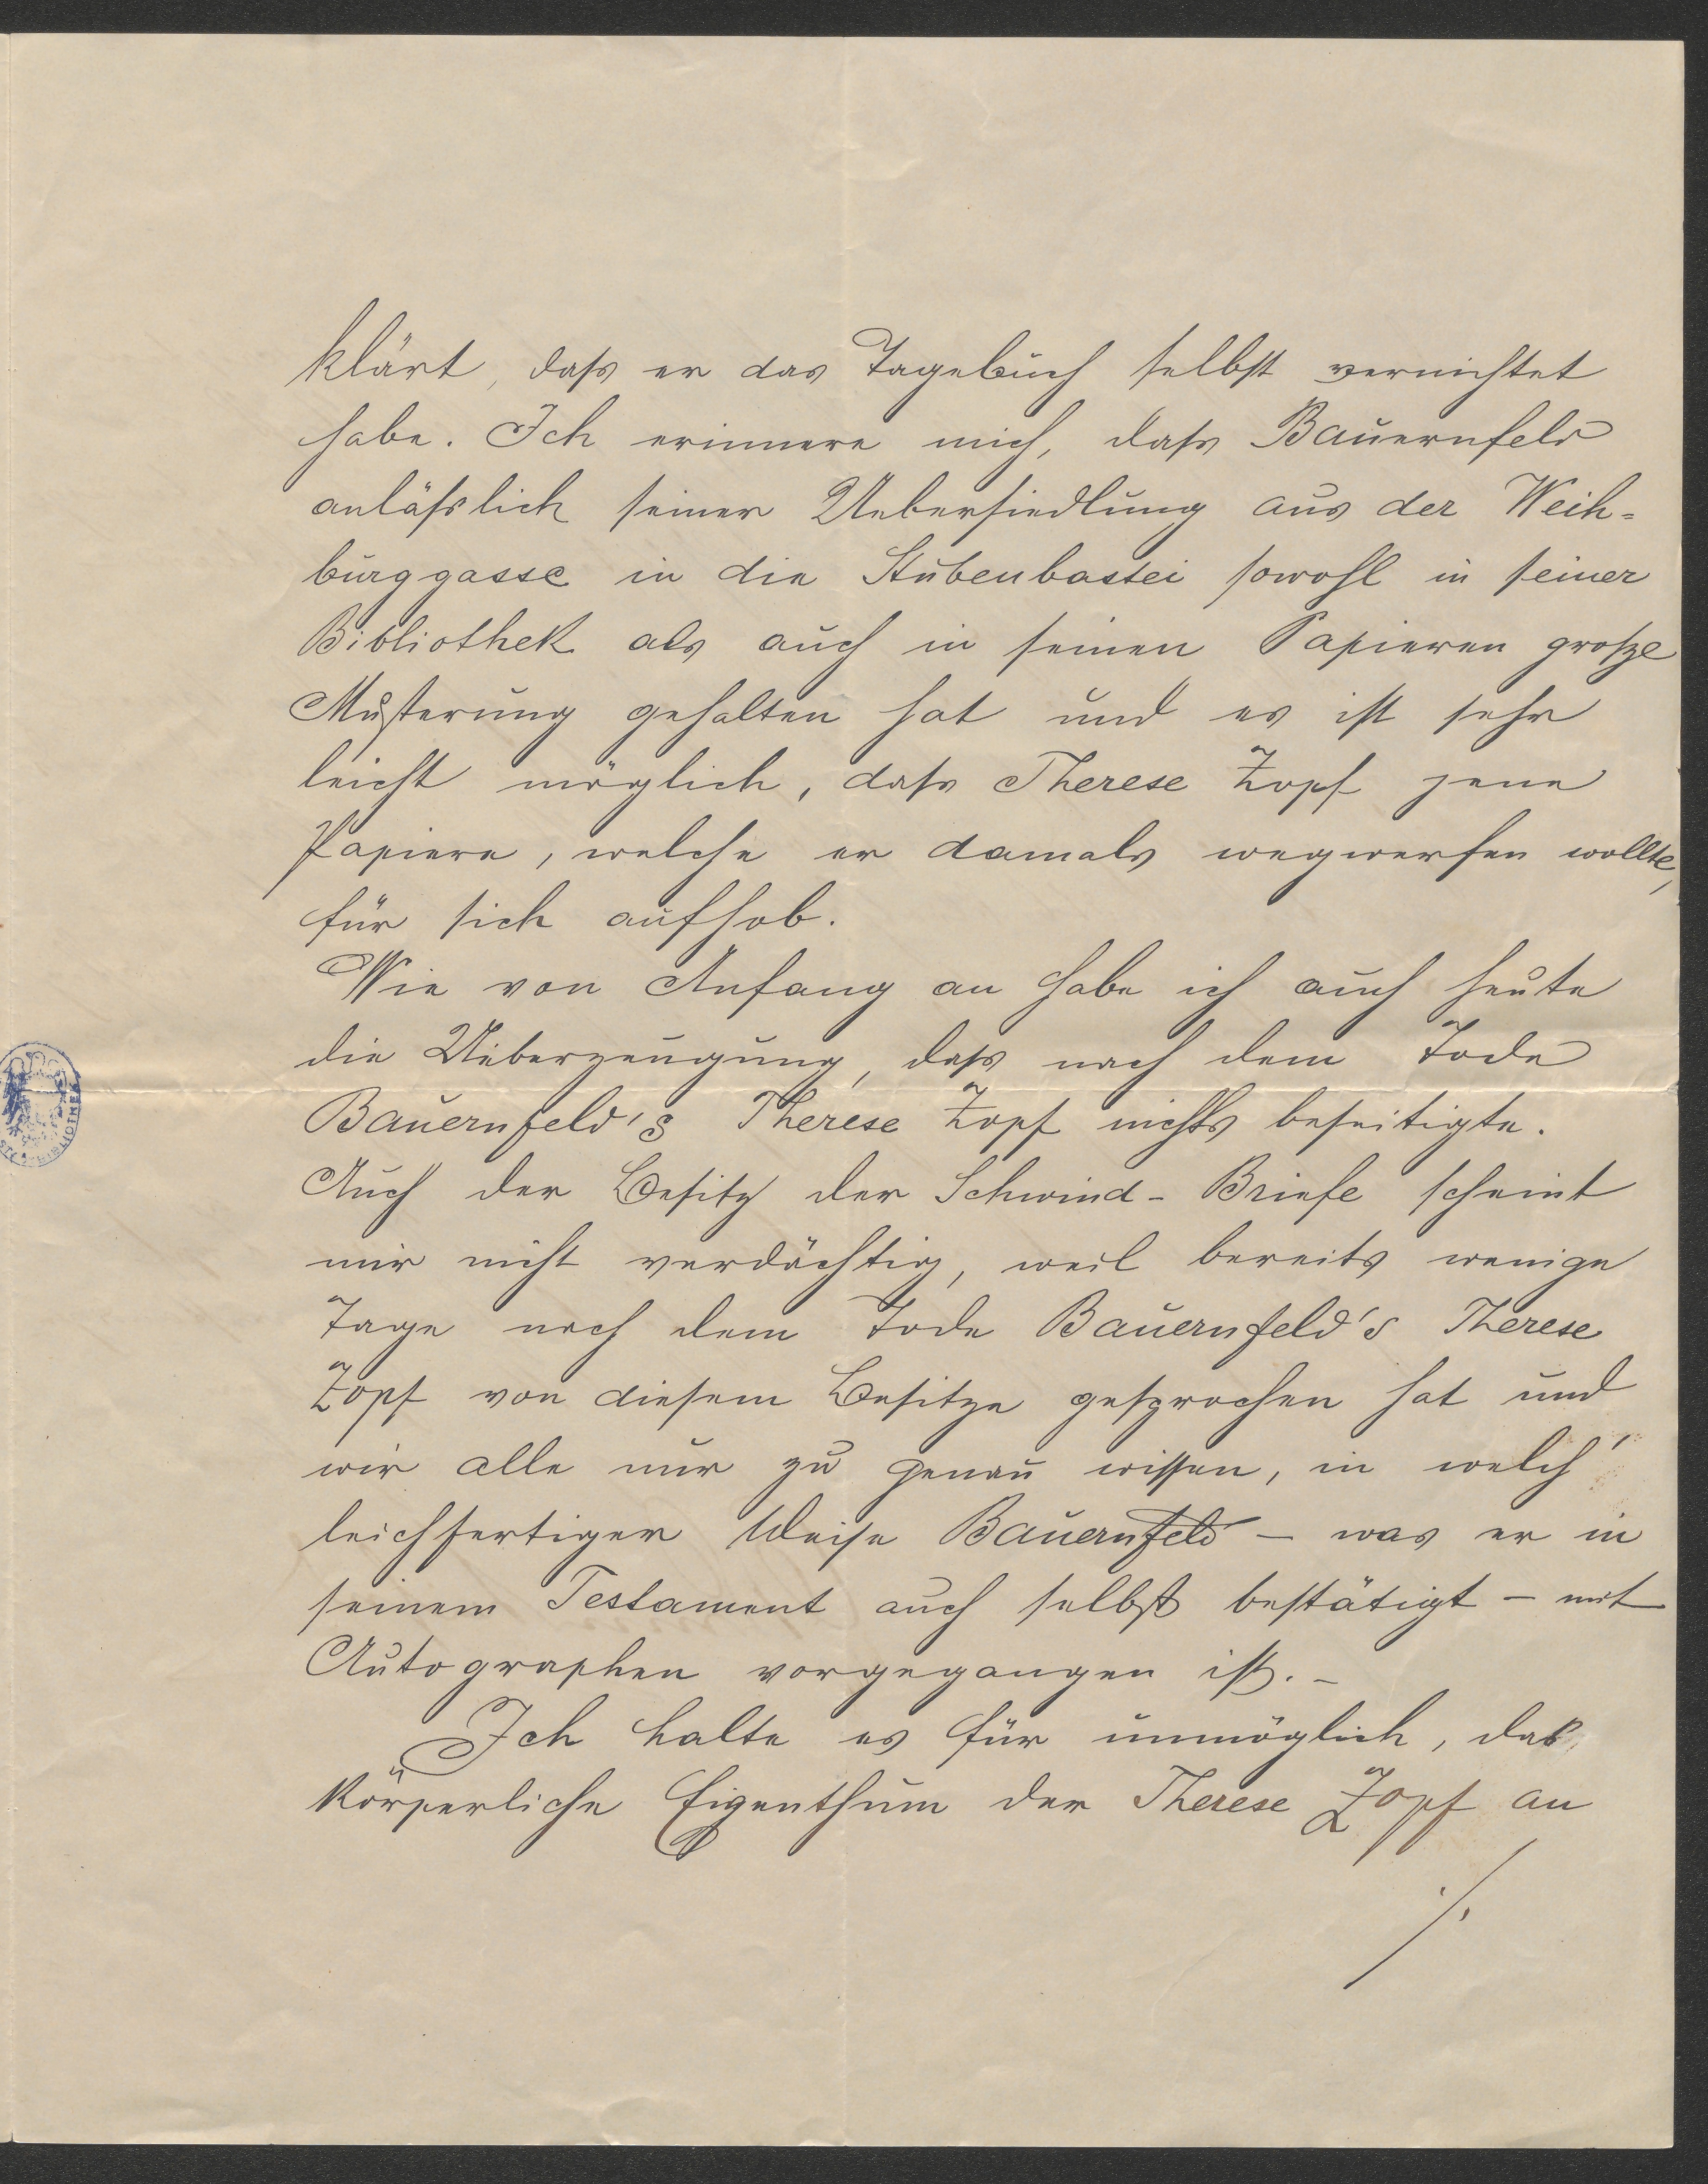 klärt, dass er das Tagebuch selbst vernichtet
habe. Ich erinnere mich, dass Bauernfeld
anlässlich seiner Uebersiedlung aus der Weih-
burggasse in die Stubenbastei sowohl in seiner
Bibliothek als auch in seinen Papieren große
Musterung gehalten hat und es ist sehr
leicht möglich, dass Therese Zopf jene
Papiere, welche er damals wegwerfen wollte,
für sich aufhob.
Wie von Anfang an habe ich auch heute
die Ueberzeugung, dass nach dem Tode
Bauernfeld's Therese Zopf nichts beseitigte.
Auch der Besitz der Schwind-Briefe scheint
mir nicht verdächtig, weil bereits wenige
Tage nach dem Tode Bauernfeld's Therese
Zopf von diesem Besitze gesprochen hat und
wir alle nur zu genau wissen, in welch'
leichfertiger Weise Bauernfeld – was er in
seinem Testament auch selbst bestätigt – mit
Autographen vorgegangen ist. –
Ich halte es für unmöglich, das
körperliche Eigenthum der Therese Zopf an
./.
BIBLIOTHEK